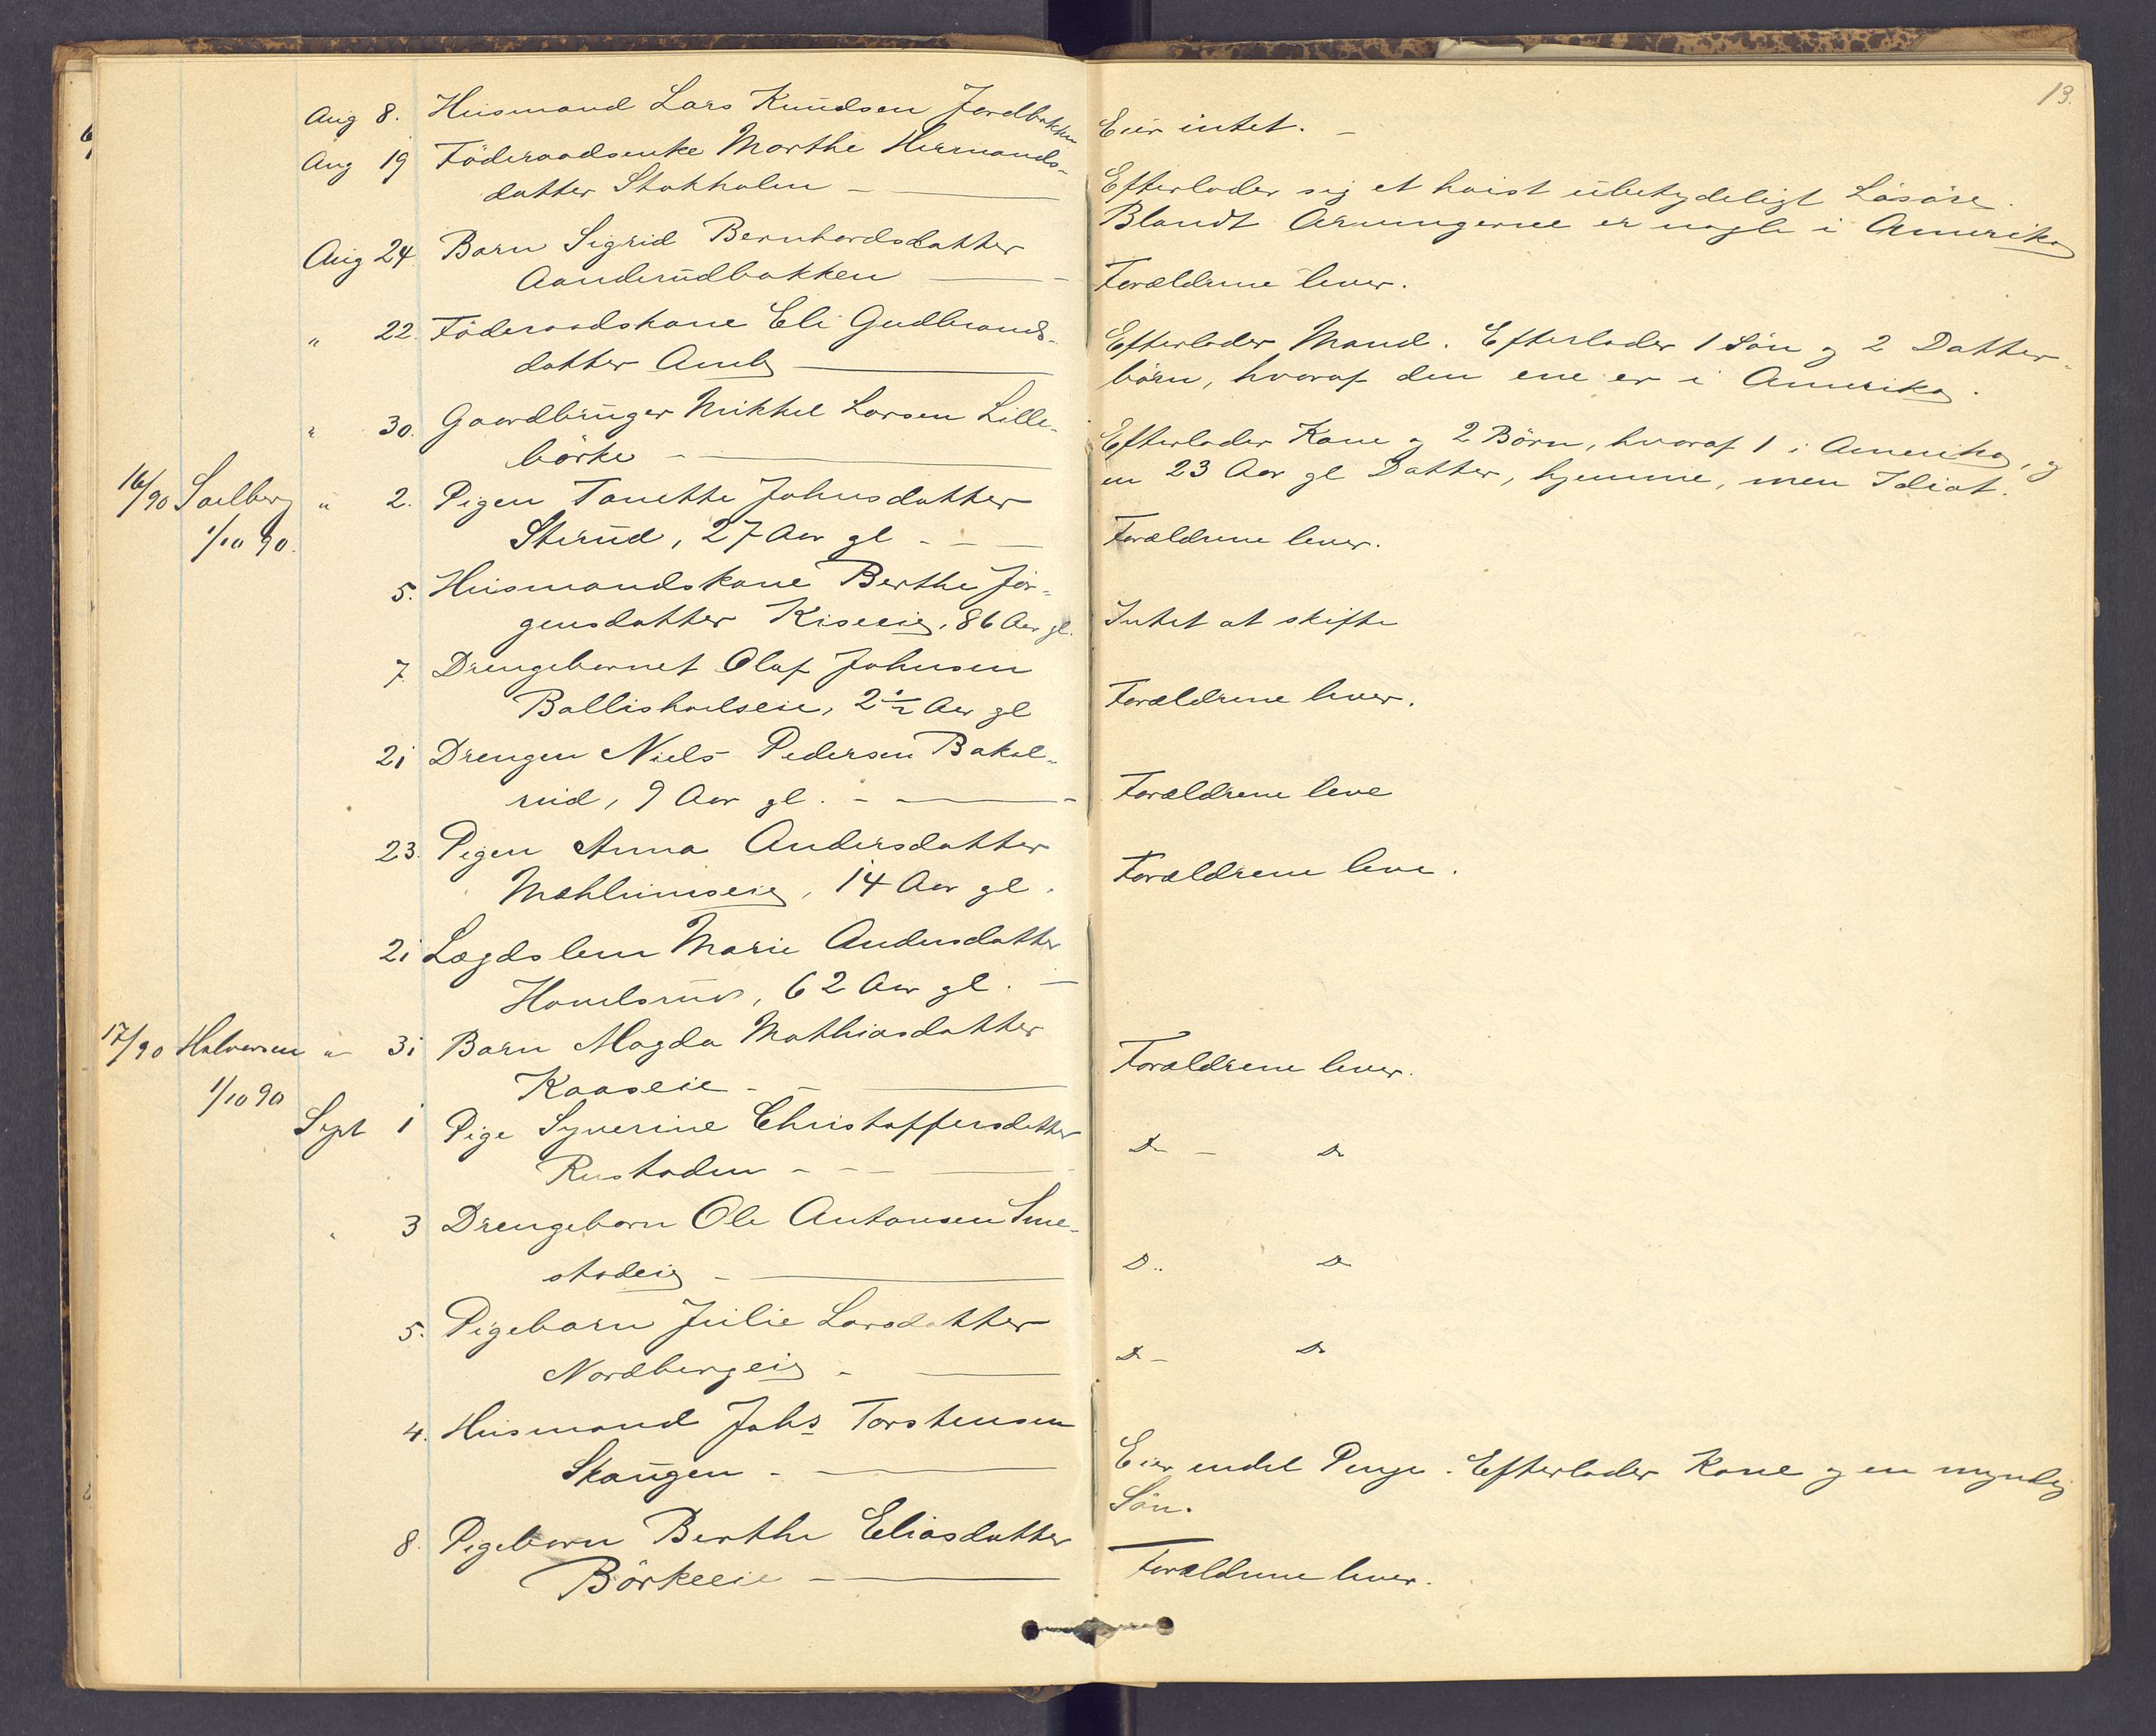 13.
Aug 8. Husmand Lars Knudsen Jordbakken
Eier intet. -
Aug 19 Föderaadsenke Marthe Hermands-
datter Stokholm -
Efterlader sig et höist ubetydeligt Lösöre.
Blandt Arvingerne er nogle i Amerika
Aug 24. Barn Sigrid Bernhardsdatter
Aanderudbakken
Forældrene lever.
" 22. Föderaadskone Eli Gudbrands-
datter Amb
Efterlader Mand. Efterlader 1 Sön og 2 Datter-
börn, hvoraf den ene er i Amerika.
" 30. Gaardbruger Mikkel Larsen Lille-
börke -
Efterlader Kone og 2 Börn, hvoraf 1 i Amerika, og
en 23 Aar gl Datter, hjemme, men Idiot.
16/90 Solberg " 2. Pigen Tonette Johnsdatter
1/10 90. Sterud, 27 Aar gl - -
Forældrene lever.
5. Husmandskone Berthe Jör-
gensdatter Kiseeie, 86 Aar gl.
Intet at skifte
7. Drengebarnet Olaf Johnsen
Ballishoelseie, 2 1/2 Aar gl
Forældrene lever.
21 Drengen Niels Pedersen Bakel-
rud, 9 Aar gl. -
Forældrene leve
23. Pigen Anna Andersdatter
Mæhlumseie, 14 Aar gl.
Forældrene leve.
21 Lægdslem Marie Andersdatter
Hovelsrud, 62 Aar gl. -
17/90 Halvorsen " 31 Barn Magda Mathiasdatter
1/10 90 Kaaseie - -
Forældrene lever.
Sept 1 Pige Syverine Christoffersdatter
Rustaden - - -
Do - Do
" 3 Drengebarn Ole Antonsen Sme-
stadeie -
Do Do
5. Pigebarn Julie Larsdatter
Nordbergeie -
Do - Do
4. Husmand Johs Torstensen
Skaugen -
Eier endel Penge. Efterlader Kone og en myndig
Sön.
8. Pigebarn Berthe Eliasdatter
Börkeeie -
Forældrene lever.